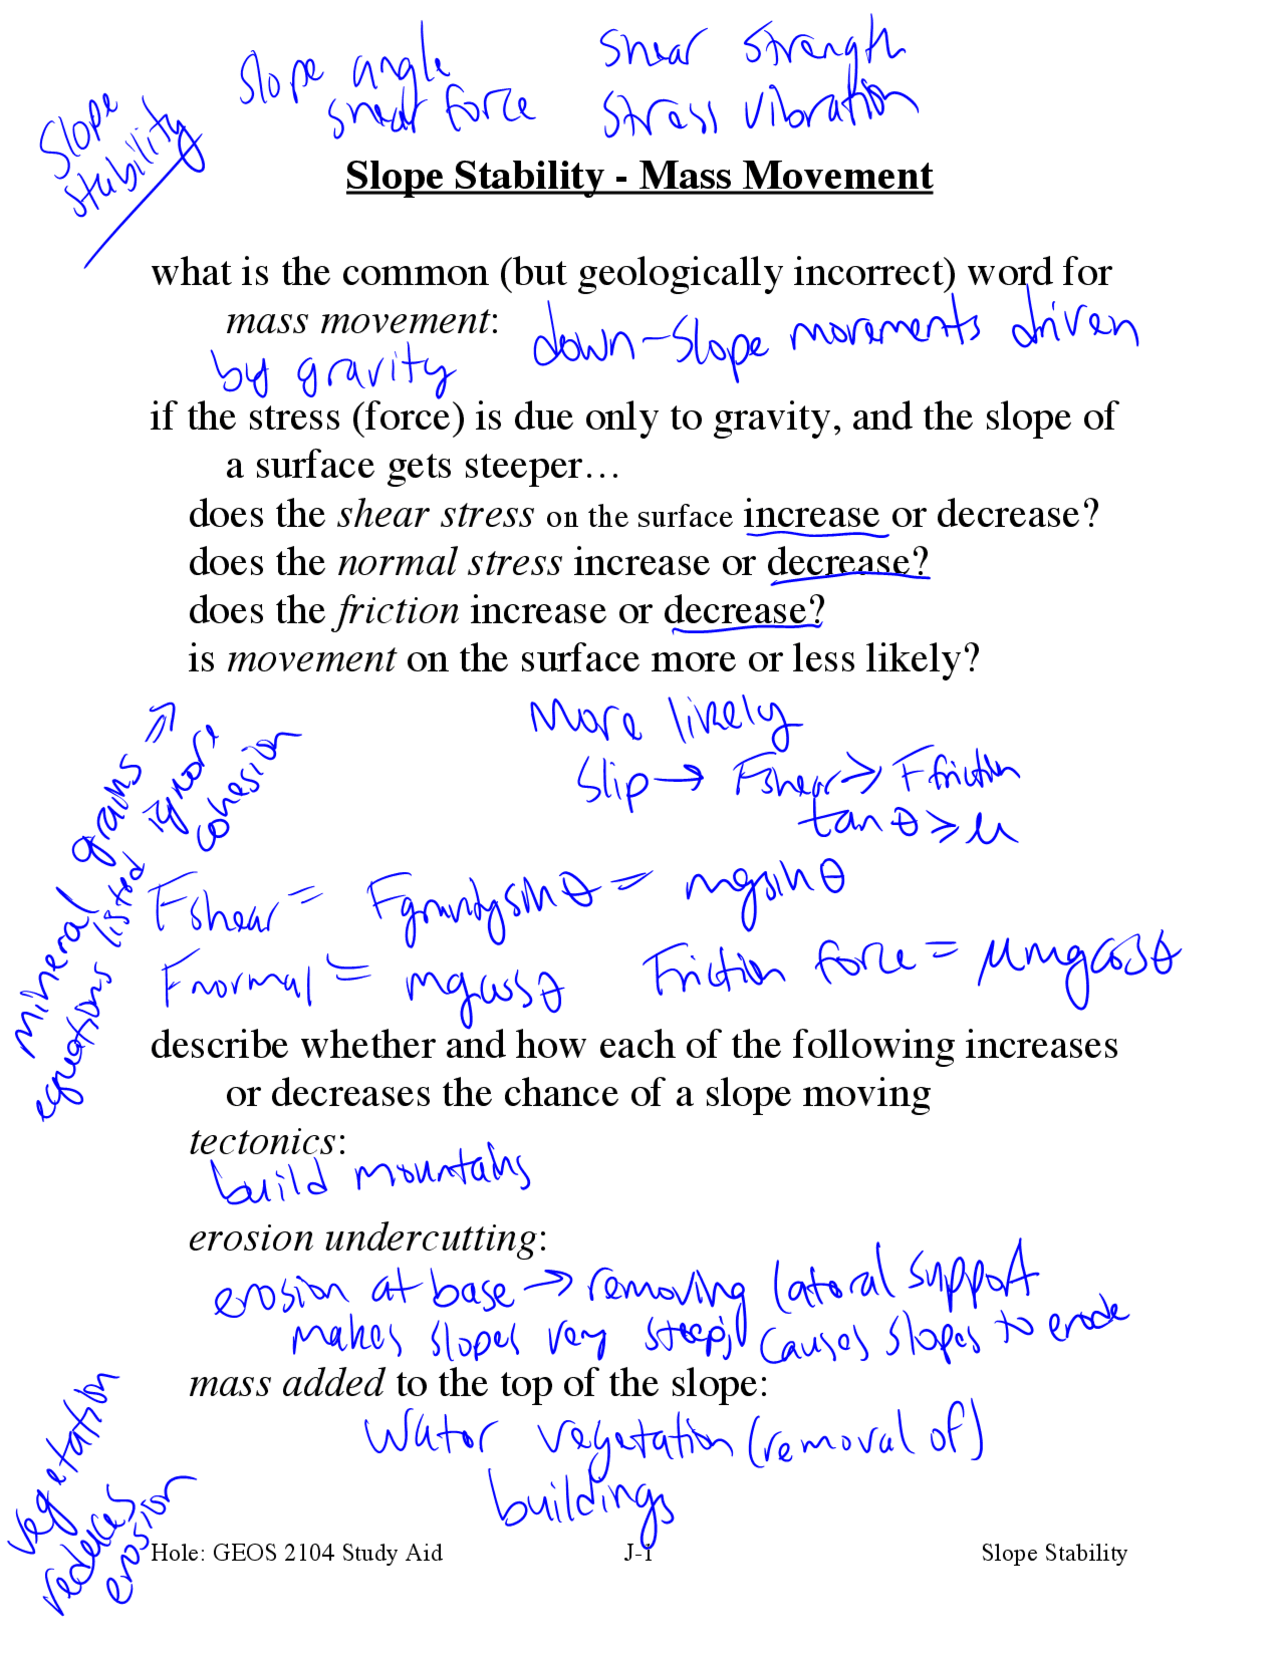 slope angle
shear force
shear strength
stress vibration
slope
stability
Slope Stability - Mass Movement
what is the common (but geologically incorrect) word for
mass movement:
down-slope movements driven
by gravity
if the stress (force) is due only to gravity, and the slope of
a surface gets steeper…
does the shear stress on the surface increase or decrease?
does the normal stress increase or decrease?
does the friction increase or decrease?
is movement on the surface more or less likely?
More likely
Slip → Fshear > Ffriction
tan θ > μ
mineral grains ⇒
equations listed ignore
cohesion
Fshear = Fgravity sin θ = mg sin θ
Fnormal = mg cos θ
Friction force = μ mg cos θ
describe whether and how each of the following increases
or decreases the chance of a slope moving
tectonics:
build mountains
erosion undercutting:
erosion at base → removing lateral support
makes slopes very steep; causes slopes to erode
mass added to the top of the slope:
water vegetation (removal of)
buildings
vegetation
reduces
erosion
Hole: GEOS 2104 Study Aid J-1 Slope Stability